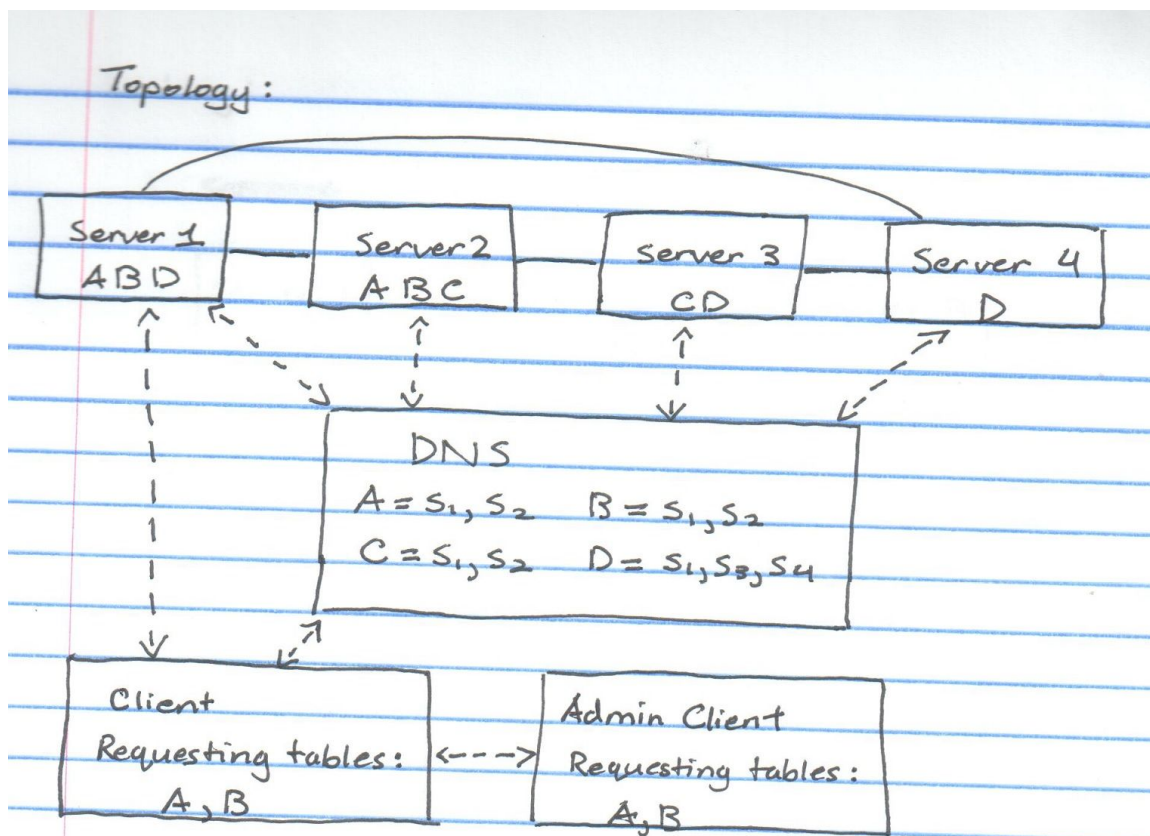 Topology:
Server 1
ABD
Server 2
ABC
Server 3
CD
Server 4
D
DNS
A = S1, S2 B = S1, S2
C = S1, S2 D = S1, S3, S4
Client
Requesting tables:
A, B
Admin Client
Requesting tables:
A, B